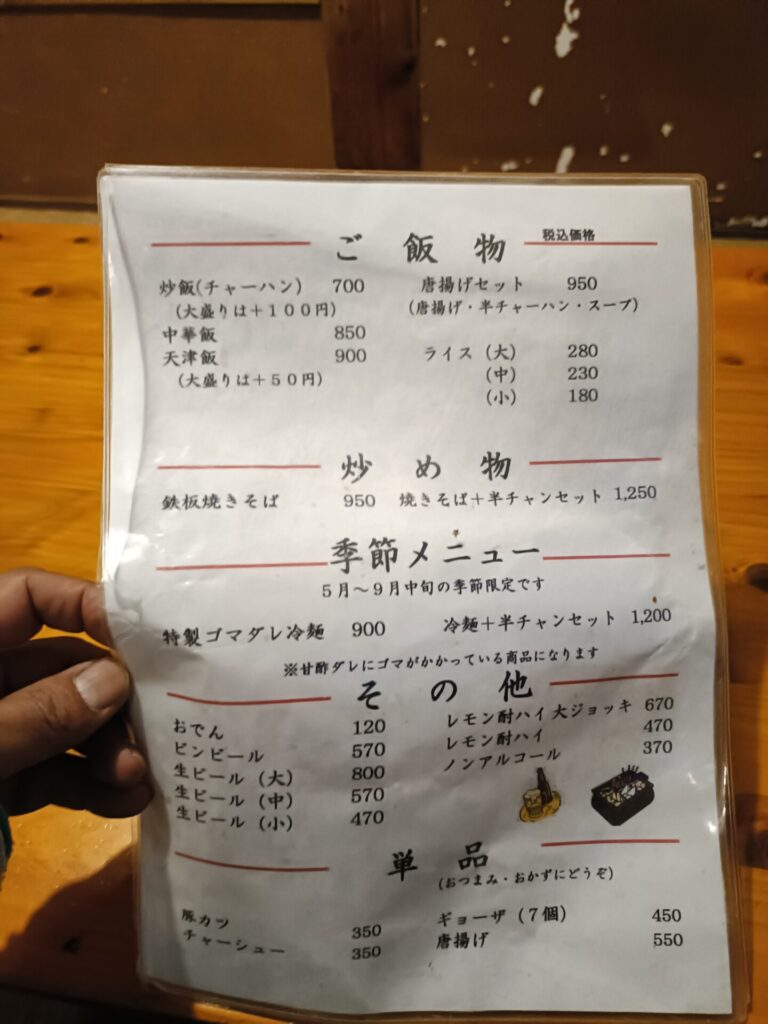 ご飯物 税込価格
炒飯(チャーハン) 700 唐揚げセット 950
(大盛りは+100円) (唐揚げ・半チャーハン・スープ)
中華飯 850
天津飯 900 ライス (大) 280
(大盛りは+50円) (中) 230
(小) 180
炒め物
鉄板焼きそば 950 焼きそば+半チャンセット 1,250
季節メニュー
5月〜9月中旬の季節限定です
特製ゴマダレ冷麺 900 冷麺+半チャンセット 1,200
※甘酢ダレにゴマがかかっている商品になります
その他
おでん 120 レモン酎ハイ大ジョッキ 670
ビンビール 570 レモン酎ハイ 470
生ビール (大) 800 ノンアルコール 370
生ビール (中) 570
生ビール (小) 470
単品
(おつまみ・おかずにどうぞ)
豚カツ 350 ギョーザ (7個) 450
チャーシュー 350 唐揚げ 550